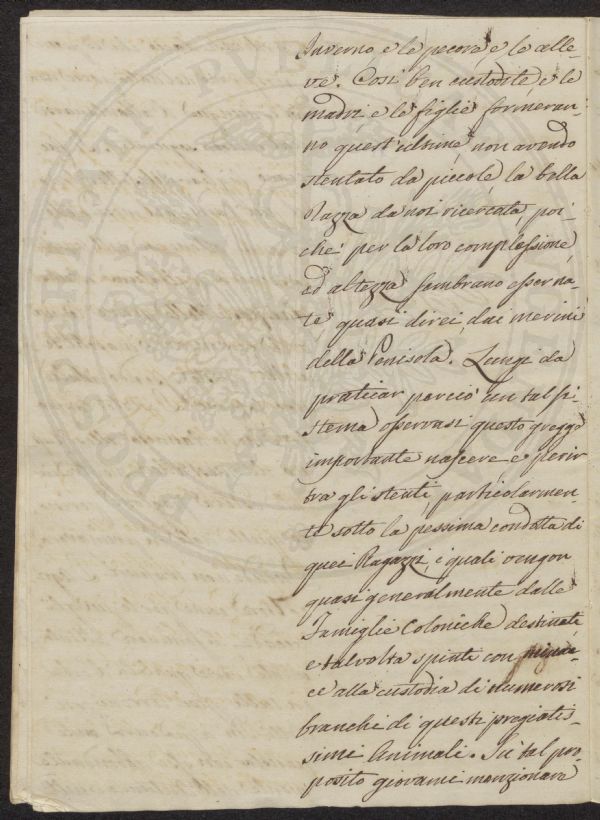 Inverno, e le pecore, e le alle-
ve. Così ben custodite, e le
madri, e le figlie formeran-
no quest'ultime, non avendo
stentato da piccole, la bella
Razza da noi ricercata, poi-
chè per la loro complessione,
ed altezza sembrano esser na-
te quasi direi, dai merini
della Penisola. Lungi da
praticar perciò un tal si-
stema osservasi questo gregge
importante nascere e perir
tra gli stenti, particolarmen
te sotto la pessima condotta di
quei Ragazzi, i quali vengon
quasi generalmente dalle
Famiglie Coloniche destinati,
e talvolta spinti con minac
ce alla custodia di numerosi
branchi di questi pregiatis-
simi Animali. In tal pro-
posito giovami menzionare